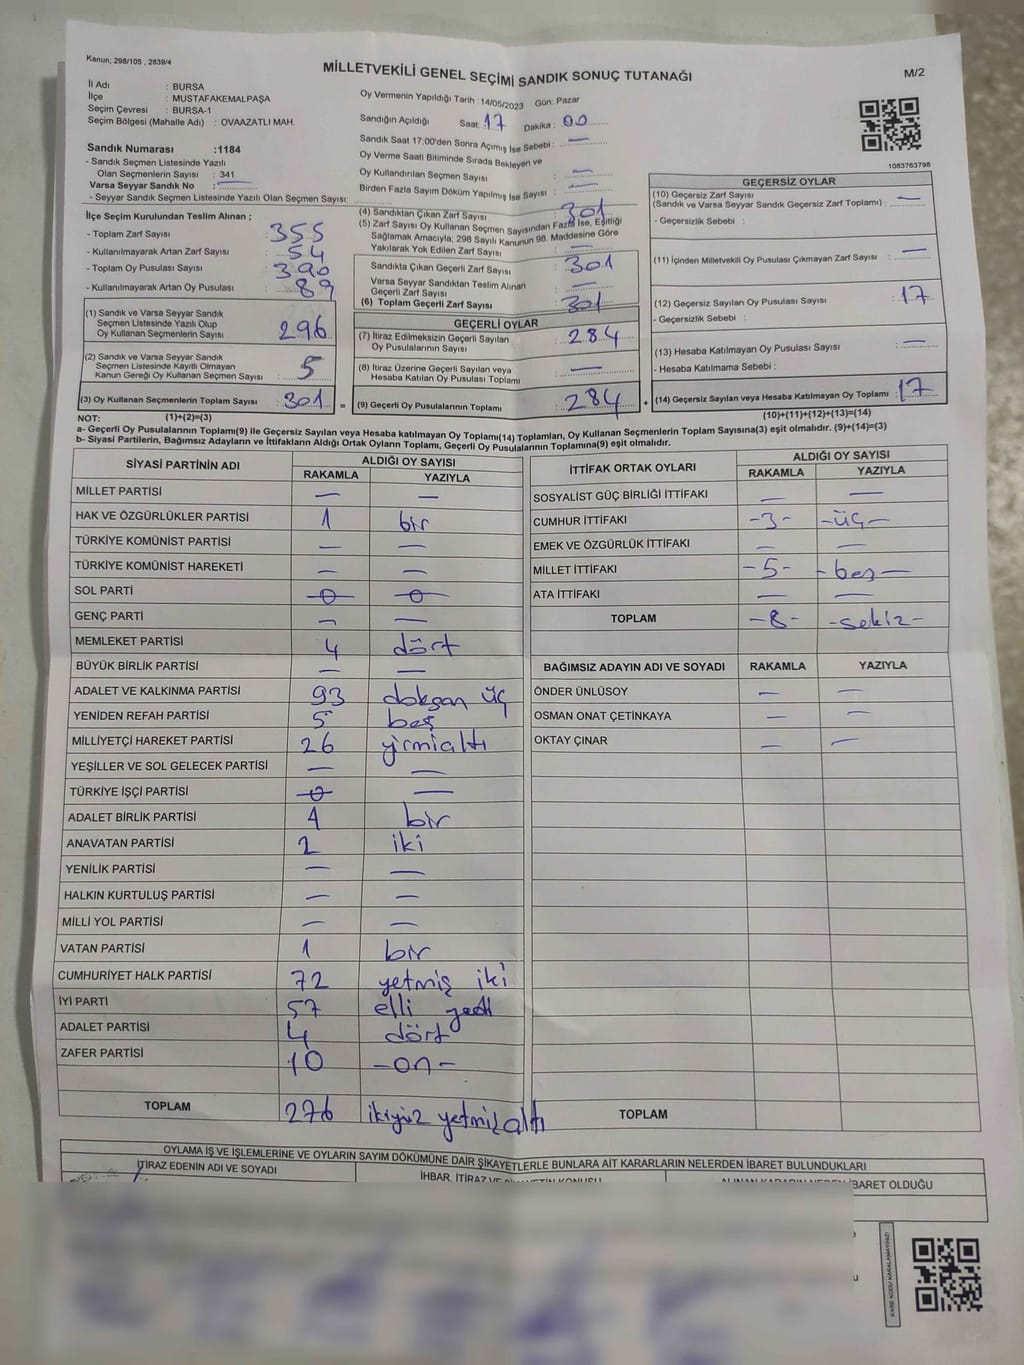 Kanun; 298/105 , 2839/4
MİLLETVEKİLİ GENEL SEÇİMİ SANDIK SONUÇ TUTANAĞI
M/2
İl Adı : BURSA
İlçe : MUSTAFAKEMALPAŞA
Seçim Çevresi : BURSA-1
Seçim Bölgesi (Mahalle Adı) : OVAAZATLI MAH.
Oy Vermenin Yapıldığı Tarih : 14/05/2023 Gün: Pazar
Sandığın Açıldığı Saat: 17 Dakika : 00
Sandık Saat 17:00'den Sonra Açımış İse Sebebi : —
Oy Verme Saati Bitiminde Sırada Bekleyen ve
Oy Kullandırılan Seçmen Sayısı : —
Birden Fazla Sayım Döküm Yapılmış İse Sayısı : —
1083763798
Sandık Numarası :1184
- Sandık Seçmen Listesinde Yazılı
Olan Seçmenlerin Sayısı : 341
Varsa Seyyar Sandık No : —
- Seyyar Sandık Seçmen Listesinde Yazılı Olan Seçmen Sayısı:
İlçe Seçim Kurulundan Teslim Alınan ;
- Toplam Zarf Sayısı : 355
- Kullanılmayarak Artan Zarf Sayısı : 54
- Toplam Oy Pusulası Sayısı : 390
- Kullanılmayarak Artan Oy Pusulası : 89
(1) Sandık ve Varsa Seyyar Sandık
Seçmen Listesinde Yazılı Olup
Oy Kullanan Seçmenlerin Sayısı : 296
(2) Sandık ve Varsa Seyyar Sandık
Seçmen Listesinde Kayıtlı Olmayan
Kanun Gereği Oy Kullanan Seçmen Sayısı : 5
(3) Oy Kullanan Seçmenlerin Toplam Sayısı : 301 =
(4) Sandıktan Çıkan Zarf Sayısı : 301
(5) Zarf Sayısı Oy Kullanan Seçmen Sayısından Fazla İse, Eşitliği
Sağlamak Amacıyla; 298 Sayılı Kanunun 98. Maddesine Göre
Yakılarak Yok Edilen Zarf Sayısı : —
Sandıkta Çıkan Geçerli Zarf Sayısı : 301
Varsa Seyyar Sandıktan Teslim Alınan
Geçerli Zarf Sayısı : —
(6) Toplam Geçerli Zarf Sayısı : 301
GEÇERLİ OYLAR
(7) İtiraz Edilmeksizin Geçerli Sayılan
Oy Pusulalarının Sayısı : 284
(8) İtiraz Üzerine Geçerli Sayılan veya
Hesaba Katılan Oy Pusulası Toplamı : —
(9) Geçerli Oy Pusulalarının Toplamı : 284 +
GEÇERSİZ OYLAR
(10) Geçersiz Zarf Sayısı
(Sandık ve Varsa Seyyar Sandık Geçersiz Zarf Toplamı) : —
- Geçersizlik Sebebi :
(11) İçinden Milletvekili Oy Pusulası Çıkmayan Zarf Sayısı : —
(12) Geçersiz Sayılan Oy Pusulası Sayısı : 17
- Geçersizlik Sebebi :
(13) Hesaba Katılmayan Oy Pusulası Sayısı : —
- Hesaba Katılmama Sebebi :
(14) Geçersiz Sayılan veya Hesaba Katılmayan Oy Toplamı : 17
NOT: (1)+(2)=(3)
(10)+(11)+(12)+(13)=(14)
a- Geçerli Oy Pusulalarının Toplamı(9) ile Geçersiz Sayılan veya Hesaba katılmayan Oy Toplamı(14) Toplamları, Oy Kullanan Seçmenlerin Toplam Sayısına(3) eşit olmalıdır. (9)+(14)=(3)
b- Siyasi Partilerin, Bağımsız Adayların ve İttifakların Aldığı Ortak Oyların Toplamı, Geçerli Oy Pusulalarının Toplamına(9) eşit olmalıdır.
SİYASİ PARTİNİN ADI ALDIĞI OY SAYISI
RAKAMLA YAZIYLA
MİLLET PARTİSİ — —
HAK VE ÖZGÜRLÜKLER PARTİSİ 1 bir
TÜRKİYE KOMÜNİST PARTİSİ — —
TÜRKİYE KOMÜNİST HAREKETİ — —
SOL PARTİ -0- -0-
GENÇ PARTİ — —
MEMLEKET PARTİSİ 4 dört
BÜYÜK BİRLİK PARTİSİ — —
ADALET VE KALKINMA PARTİSİ 93 doksan üç
YENİDEN REFAH PARTİSİ 5 beş
MİLLİYETÇİ HAREKET PARTİSİ 26 yirmialtı
YEŞİLLER VE SOL GELECEK PARTİSİ — —
TÜRKİYE İŞÇİ PARTİSİ -0- —
ADALET BİRLİK PARTİSİ 1 bir
ANAVATAN PARTİSİ 2 iki
YENİLİK PARTİSİ — —
HALKIN KURTULUŞ PARTİSİ — —
MİLLİ YOL PARTİSİ — —
VATAN PARTİSİ 1 bir
CUMHURİYET HALK PARTİSİ 72 yetmiş iki
İYİ PARTİ 57 elli yedi
ADALET PARTİSİ 4 dört
ZAFER PARTİSİ 10 -on-
TOPLAM 276 ikiyüz yetmiş altı
İTTİFAK ORTAK OYLARI ALDIĞI OY SAYISI
RAKAMLA YAZIYLA
SOSYALİST GÜÇ BİRLİĞİ İTTİFAKI — —
CUMHUR İTTİFAKI -3- -üç-
EMEK VE ÖZGÜRLÜK İTTİFAKI — —
MİLLET İTTİFAKI -5- -beş-
ATA İTTİFAKI — —
TOPLAM -8- -sekiz-
BAĞIMSIZ ADAYIN ADI VE SOYADI RAKAMLA YAZIYLA
ÖNDER ÜNLÜSOY — —
OSMAN ONAT ÇETİNKAYA — —
OKTAY ÇINAR — —
TOPLAM
OYLAMA İŞ VE İŞLEMLERİNE VE OYLARIN SAYIM DÖKÜMÜNE DAİR ŞİKAYETLERLE BUNLARA AİT KARARLARIN NELERDEN İBARET BULUNDUKLARI
İTİRAZ EDENİN ADI VE SOYADI
İHBAR, İTİRAZ VE
İBARET OLDUĞU
KARE KODU KARALAMAYINIZ!